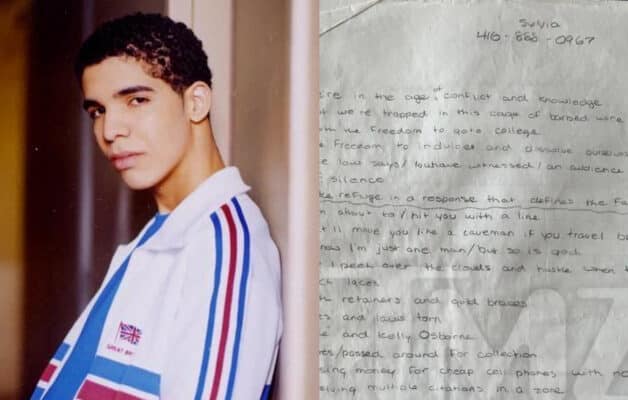 Sylvia
416 - 888 - 0967
're in the age of conflict and knowledge
t we're trapped in this cage of barbed wire
the freedom to goto college
e freedom to indulge and dissolve ourselve
e law says/ / an audience
silence
ke refuge in a response that defines the Fe
m about to / hit you with a line
t'll move you like a caveman if you travel b
now I'm just one man / but so is god
I peek over the clouds and hustle when t
ck laces
th retainers and gold braces
es and jaws torn
e and Kelly Osborne
res/passed around for collection
sing money for cheap cell phones with no
eiving multiple citations in a zone
GREAT BR